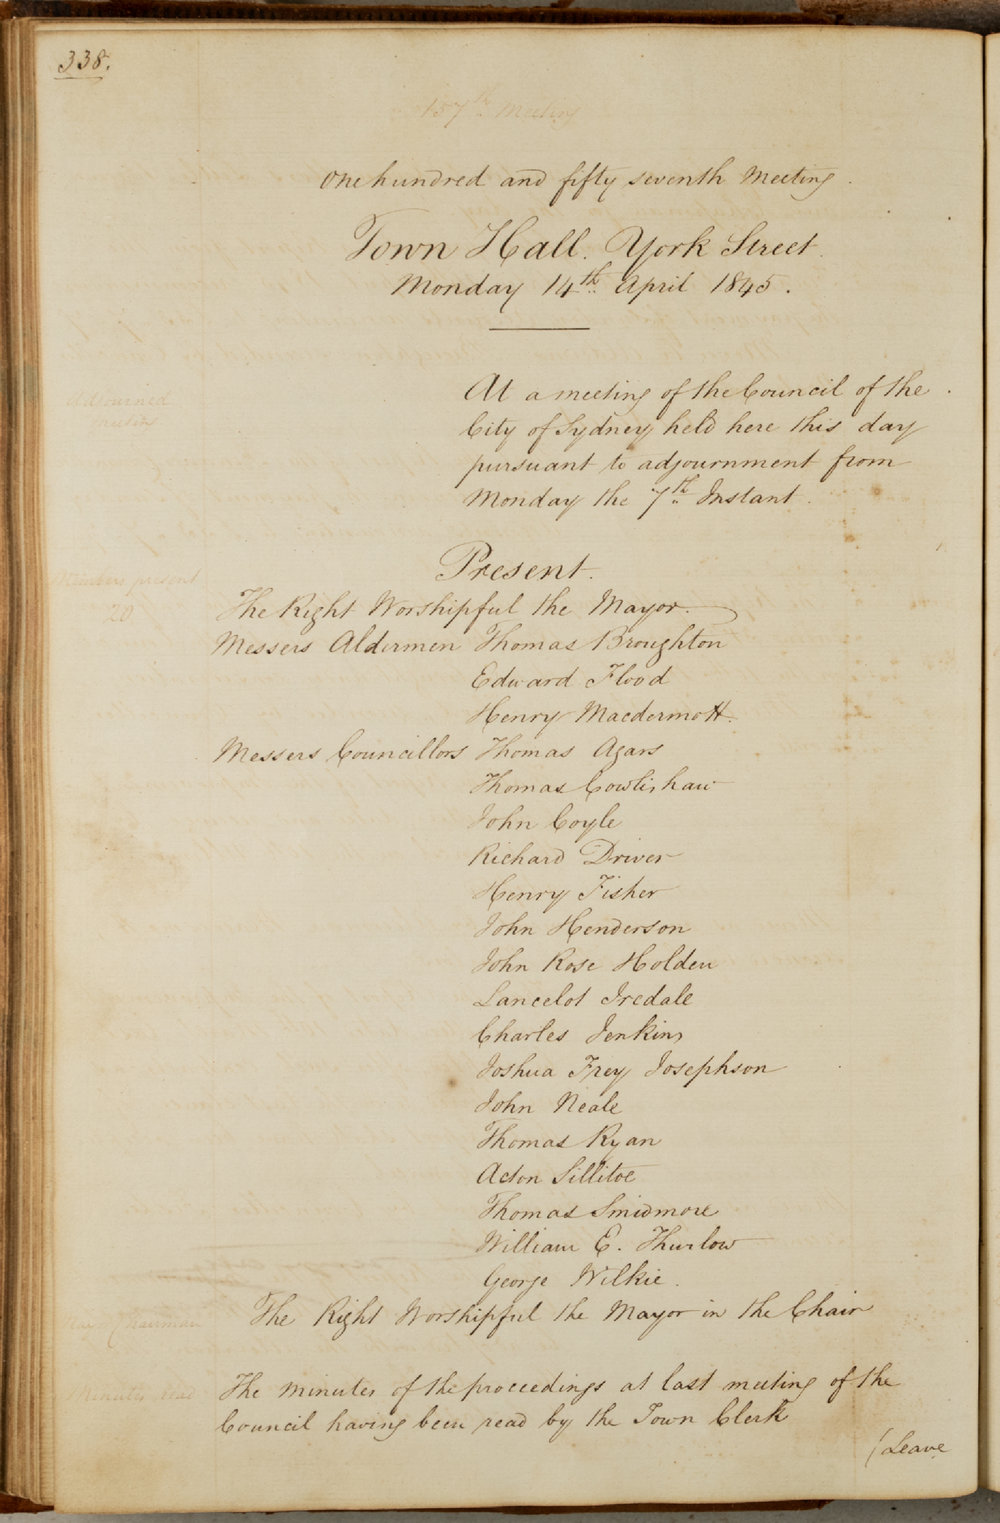 338.
157th Meeting
One hundred and fifty seventh Meeting.
Town Hall. York Street.
Monday 14th April 1845.
At a meeting of the Council of the
Adjourned
City of Sydney held here this day
meeting
pursuant to adjournment from
Monday the 7th Instant.
Present.
Members present
The Right Worshipful the Mayor.
20
Messers Aldermen Thomas Broughton
Edward Flood
Henry Macdermott.
Messers Councillors Thomas Agars
Thomas Cowlishaw
John Coyle
Richard Driver
Henry Fisher
John Henderson
John Rose Holden
Lancelot Iredale
Charles Jenkins
Joshua Frey Josephson
John Neale
Thomas Ryan
Acton Sillitoe
Thomas Smidmore
William E. Thurlow
George Wilkie.
The Right Worshipful the Mayor in the Chair
Chairman
Minutes read
The minutes of the proceedings at last meeting of the
Council having been read by the Town Clerk
(Leave